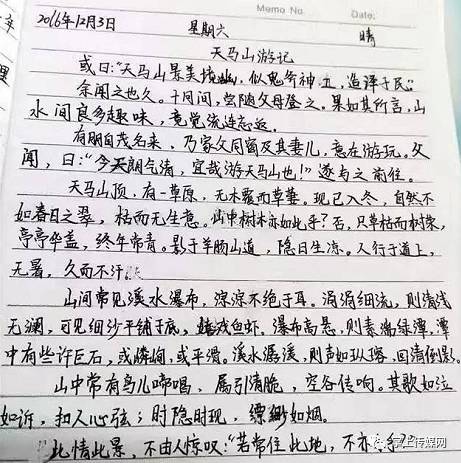 Memo No.
Date:
2016年12月3日 星期六 晴
天马山游记
或曰:“天马山景美境幽,似鬼斧神工,造译于民”
余闻之也久。十月间,尝随父母登之。果如其所言,山
水间良多趣味,竟觉流连忘返。
有朋自茂名来,乃家父同窗及其妻儿,意在游玩。父
闻,曰:“今天朗气清,宜哉游天马山也!”遂与之前往。
天马山顶,有一草原,无木覆而草萋。现已入冬,自然不
如春日之翠,枯而无生意。山中树木亦如此乎?否,只草枯而树荣,
亭亭华盖,终年常青。影于羊肠山道,隐日生凉。人行于道上,
无暑,久而不汗
山间常见溪水瀑布,淙淙不绝于耳。涓涓细流,则清浅
无澜,可见细沙平铺于底,嬉戏鱼虾。瀑布高悬,则素湍绿潭,潭
中有些许巨石,或嶙峋,或平滑。溪水潺溪,则声如玑璐,回清倒影。
山中常有鸟儿啼唱,属引清脆,空谷传响。其歌如泣
如诉,扣人心弦;时隐时现,缥缈如烟。
此情此景,不由人惊叹:“若常住此地,不亦
掌上传媒网